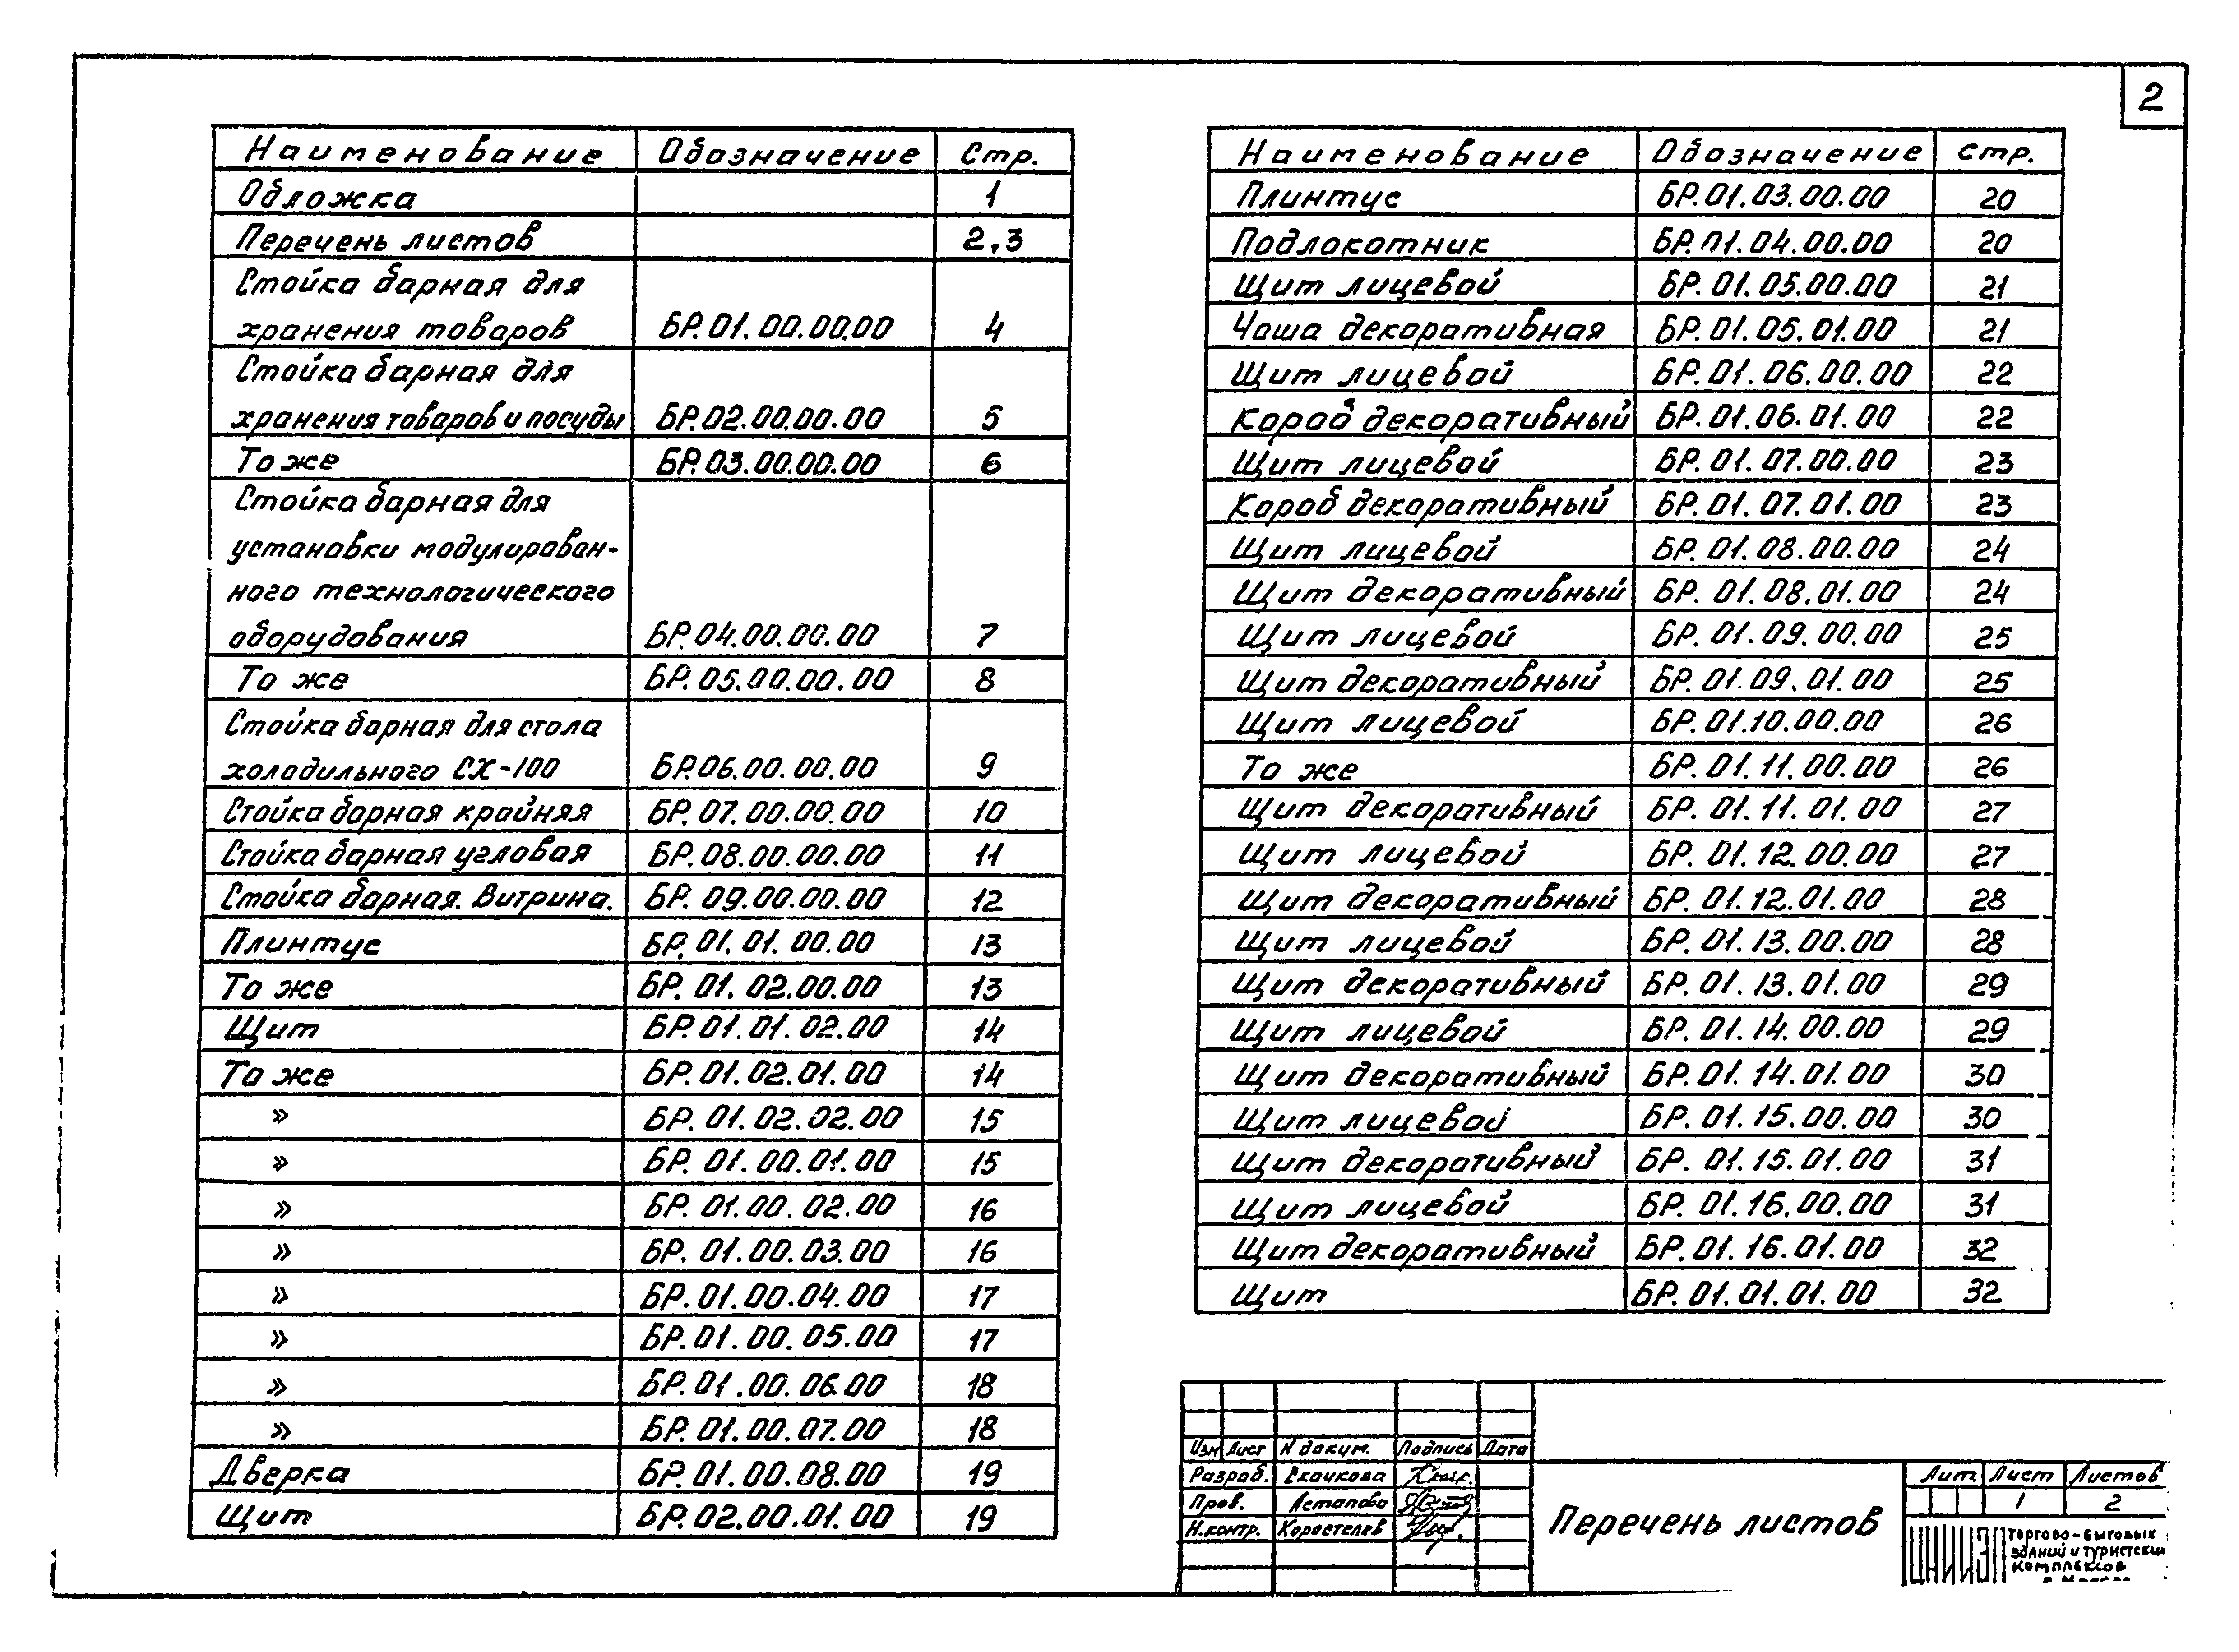 2
Наименование Обозначение Стр.
Обложка 1
Перечень листов 2,3
Стойка барная для
хранения товаров БР.01.00.00.00 4
Стойка барная для
хранения товаров и посуды БР.02.00.00.00 5
То же БР.03.00.00.00 6
Стойка барная для
установки модулирован-
ного технологического
оборудования БР.04.00.00.00 7
То же БР.05.00.00.00 8
Стойка барная для стола
холодильного СХ-100 БР.06.00.00.00 9
Стойка барная крайняя БР.07.00.00.00 10
Стойка барная угловая БР.08.00.00.00 11
Стойка барная. Витрина. БР.09.00.00.00 12
Плинтус БР.01.01.00.00 13
То же БР.01.02.00.00 13
Щит БР.01.01.02.00 14
То же БР.01.02.01.00 14
» БР.01.02.02.00 15
» БР.01.00.01.00 15
» БР.01.00.02.00 16
» БР.01.00.03.00 16
» БР.01.00.04.00 17
» БР.01.00.05.00 17
» БР.01.00.06.00 18
» БР.01.00.07.00 18
Дверка БР.01.00.08.00 19
Щит БР.02.00.01.00 19
Наименование Обозначение стр.
Плинтус БР.01.03.00.00 20
Подлокотник БР.01.04.00.00 20
Щит лицевой БР.01.05.00.00 21
Чаша декоративная БР.01.05.01.00 21
Щит лицевой БР.01.06.00.00 22
Короб декоративный БР.01.06.01.00 22
Щит лицевой БР.01.07.00.00 23
Короб декоративный БР.01.07.01.00 23
Щит лицевой БР.01.08.00.00 24
Щит декоративный БР.01.08.01.00 24
Щит лицевой БР.01.09.00.00 25
Щит декоративный БР.01.09.01.00 25
Щит лицевой БР.01.10.00.00 26
То же БР.01.11.00.00 26
Щит декоративный БР.01.11.01.00 27
Щит лицевой БР.01.12.00.00 27
Щит декоративный БР.01.12.01.00 28
Щит лицевой БР.01.13.00.00 28
Щит декоративный БР.01.13.01.00 29
Щит лицевой БР.01.14.00.00 29
Щит декоративный БР.01.14.01.00 30
Щит лицевой БР.01.15.00.00 30
Щит декоративный БР.01.15.01.00 31
Щит лицевой БР.01.16.00.00 31
Щит декоративный БР.01.16.01.00 32
Щит БР.01.01.01.00 32
Изм Лист N докум. Подпись Дата
Разраб. Скачкова
Пров. Астапова
Н.контр. Коростелев
Перечень листов
Лит. Лист Листов
1 2
ЦНИИЭП торгово-бытовых
зданий и туристских
комплексов